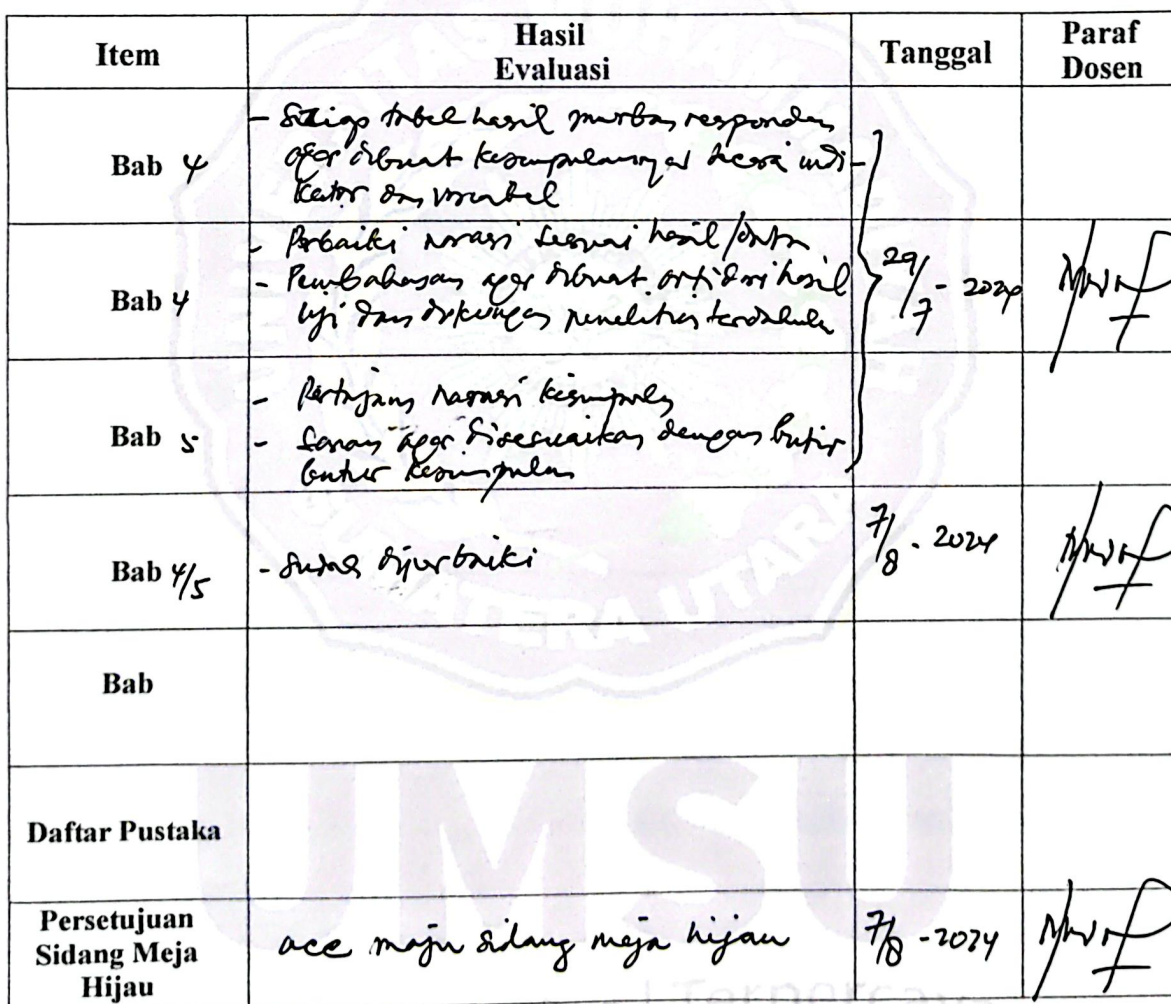 Item
Hasil
Evaluasi
Tanggal
Paraf
Dosen
Bab 4
- Setiap tabel hasil responden
agar dibuat kesimpulannya secara indi-
kator dan variabel
Bab 4
- Perbaiki narasi sesuai hasil/data
- Pembahasan agar dibuat arti dari hasil
uji dan dukungan penelitian terdahulu
29/7 - 2024
Bab 5
- Pertajam narasi kesimpulan
- Saran agar disesuaikan dengan butir
butir kesimpulan
Bab 4/5
- Sudah diperbaiki
7/8 - 2024
Bab
Daftar Pustaka
Persetujuan
Sidang Meja
Hijau
acc maju sidang meja hijau
7/8 - 2024
SUMATERA UTARA
UMSU